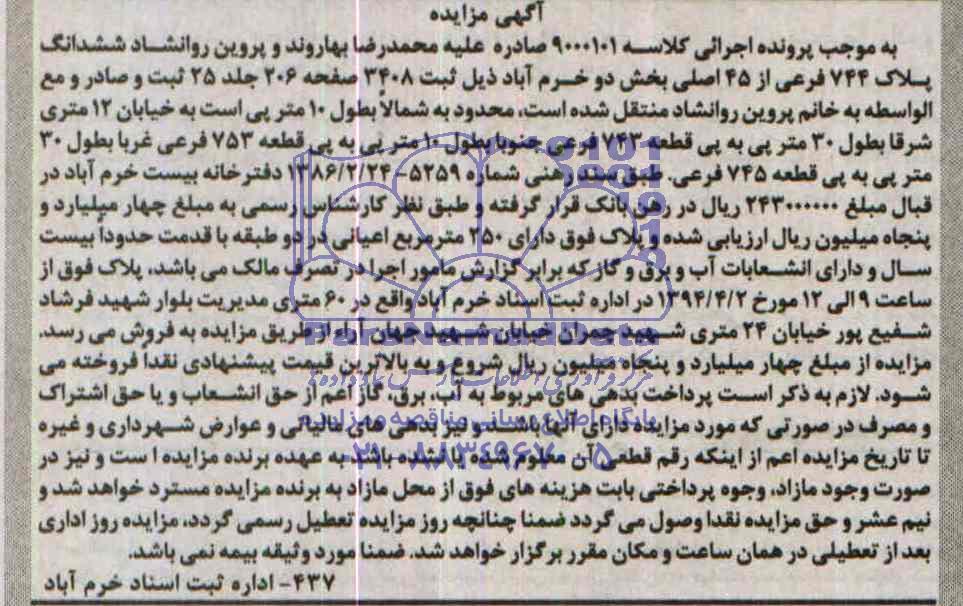 آگهی مزایده
به موجب پرونده اجرائی کلاسه ۹۰۰۰۱۰۱ صادره علیه محمدرضا بهاروند و پروین روانشاد ششدانگ
پلاک ۷۴۴ فرعی از ۴۵ اصلی بخش دو خرم آباد ذیل ثبت ۳۴۰۸ صفحه ۲۰۶ جلد ۲۵ ثبت و صادر و مع
الواسطه به خانم پروین روانشاد منتقل شده است، محدود به شمالاً بطول ۱۰ متر پی است به خیابان ۱۲ متری
شرقا بطول ۳۰ متر پی به پی قطعه ۷۴۳ فرعی جنوبا بطول ۱۰ متر پی به پی قطعه ۷۵۳ فرعی غربا بطول ۳۰
متر پی به پی قطعه ۷۴۵ فرعی. طبق سند رهنی شماره ۵۲۵۹-۱۳۸۶/۲/۲۴ دفترخانه بیست خرم آباد در
قبال مبلغ ۲۴۳۰۰۰۰۰۰ ریال در رهن بانک قرار گرفته و طبق نظر کارشناس رسمی به مبلغ چهار میلیارد و
پنجاه میلیون ریال ارزیابی شده و پلاک فوق دارای ۲۵۰ مترمربع اعیانی در دو طبقه با قدمت حدوداً بیست
سال و دارای انشعابات آب و برق و گاز که برابر گزارش مامور اجرا در تصرف مالک می باشد، پلاک فوق از
ساعت ۹ الی ۱۲ مورخ ۱۳۹۴/۴/۲ در اداره ثبت اسناد خرم آباد واقع در ۶۰ متری مدیریت بلوار شهید فرشاد
شفیع پور خیابان ۲۴ متری شهید چمران خیابان شهید جهان آراء از طریق مزایده به فروش می رسد.
مزایده از مبلغ چهار میلیارد و پنجاه میلیون ریال شروع و به بالاترین قیمت پیشنهادی نقداً فروخته می
شود. لازم به ذکر است پرداخت بدهی های مربوط به آب، برق، گاز اعم از حق انشعاب و یا حق اشتراک
و مصرف در صورتی که مورد مزایده دارای آنها باشد و نیز بدهی های مالیاتی و عوارض شهرداری و غیره
تا تاریخ مزایده اعم از اینکه رقم قطعی آن معلوم شده یا نشده باشد به عهده برنده مزایده است و نیز در
صورت وجود مازاد، وجوه پرداختی بابت هزینه های فوق از محل مازاد به برنده مزایده مسترد خواهد شد و
نیم عشر و حق مزایده نقدا وصول می گردد ضمنا چنانچه روز مزایده تعطیل رسمی گردد، مزایده روز اداری
بعد از تعطیلی در همان ساعت و مکان مقرر برگزار خواهد شد. ضمنا مورد وثیقه بیمه نمی باشد.
۴۳۷- اداره ثبت اسناد خرم آباد